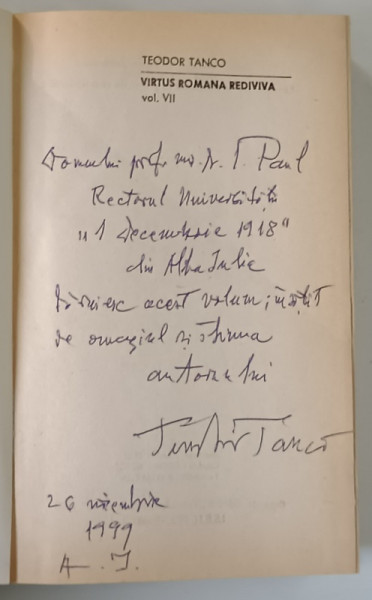 TEODOR TANCO
VIRTUS ROMANA REDIVIVA
vol. VII
Domnului prof. univ. dr. I. Paul
Rectorul Universității
"1 Decembrie 1918"
din Alba Iulia
dăruiesc acest volum, însoțit
de omagiul și stima
autorului
Teodor Tanco
26 noiembrie
1999
A. I.